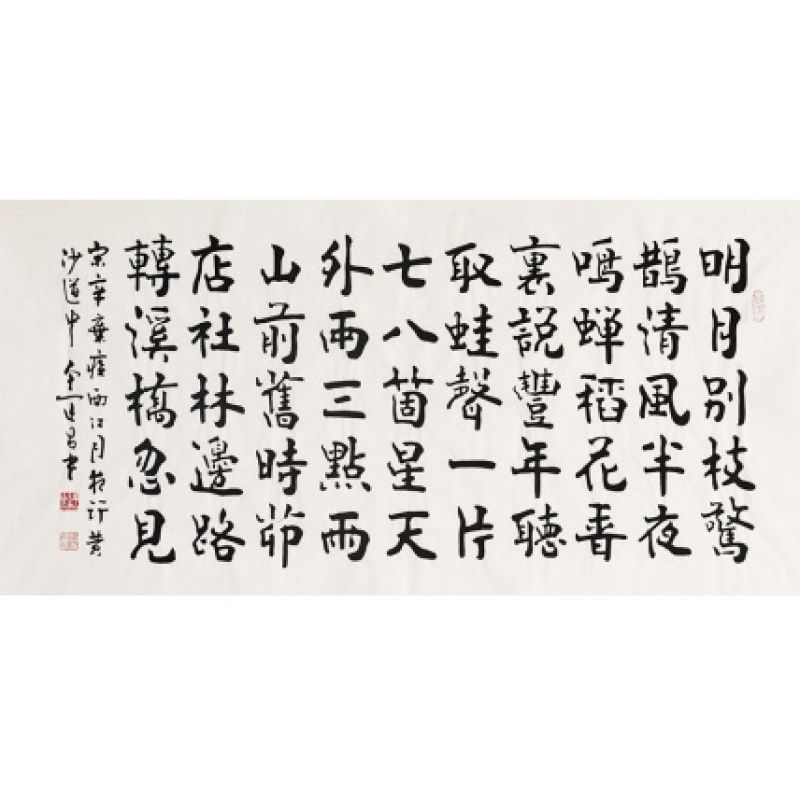 明月别枝驚
鵲清風半夜
鳴蝉稻花香
裏説豐年聽
取蛙聲一片
七八箇星天
外兩三點雨
山前舊時茆
店社林邊路
轉溪橋忽見
宋辛棄疾西江月夜行黄
沙道中